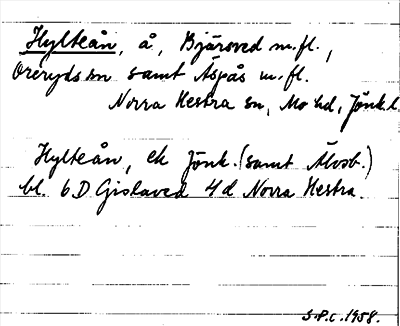 Hylteån, å, Bjärsved m.fl.,
Öreryds sn samt Äspås m.fl.
Norra Hestra sn, Mo hd, Jönk.l.
Hylteån, ek Jönk. (samt Älvsb.)
bl. 6D Gislaved 4d Norra Hestra.
S.P.C. 1958.